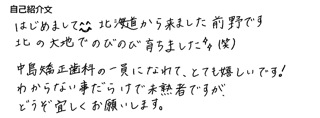 自己紹介文
はじめまして^^ 北海道から来ました前野です
北の大地でのびのび育ちました^^(笑)
中島矯正歯科の一員になれて、とても嬉しいです!
わからない事だらけで未熟者ですが、
どうぞ宜しくお願いします。